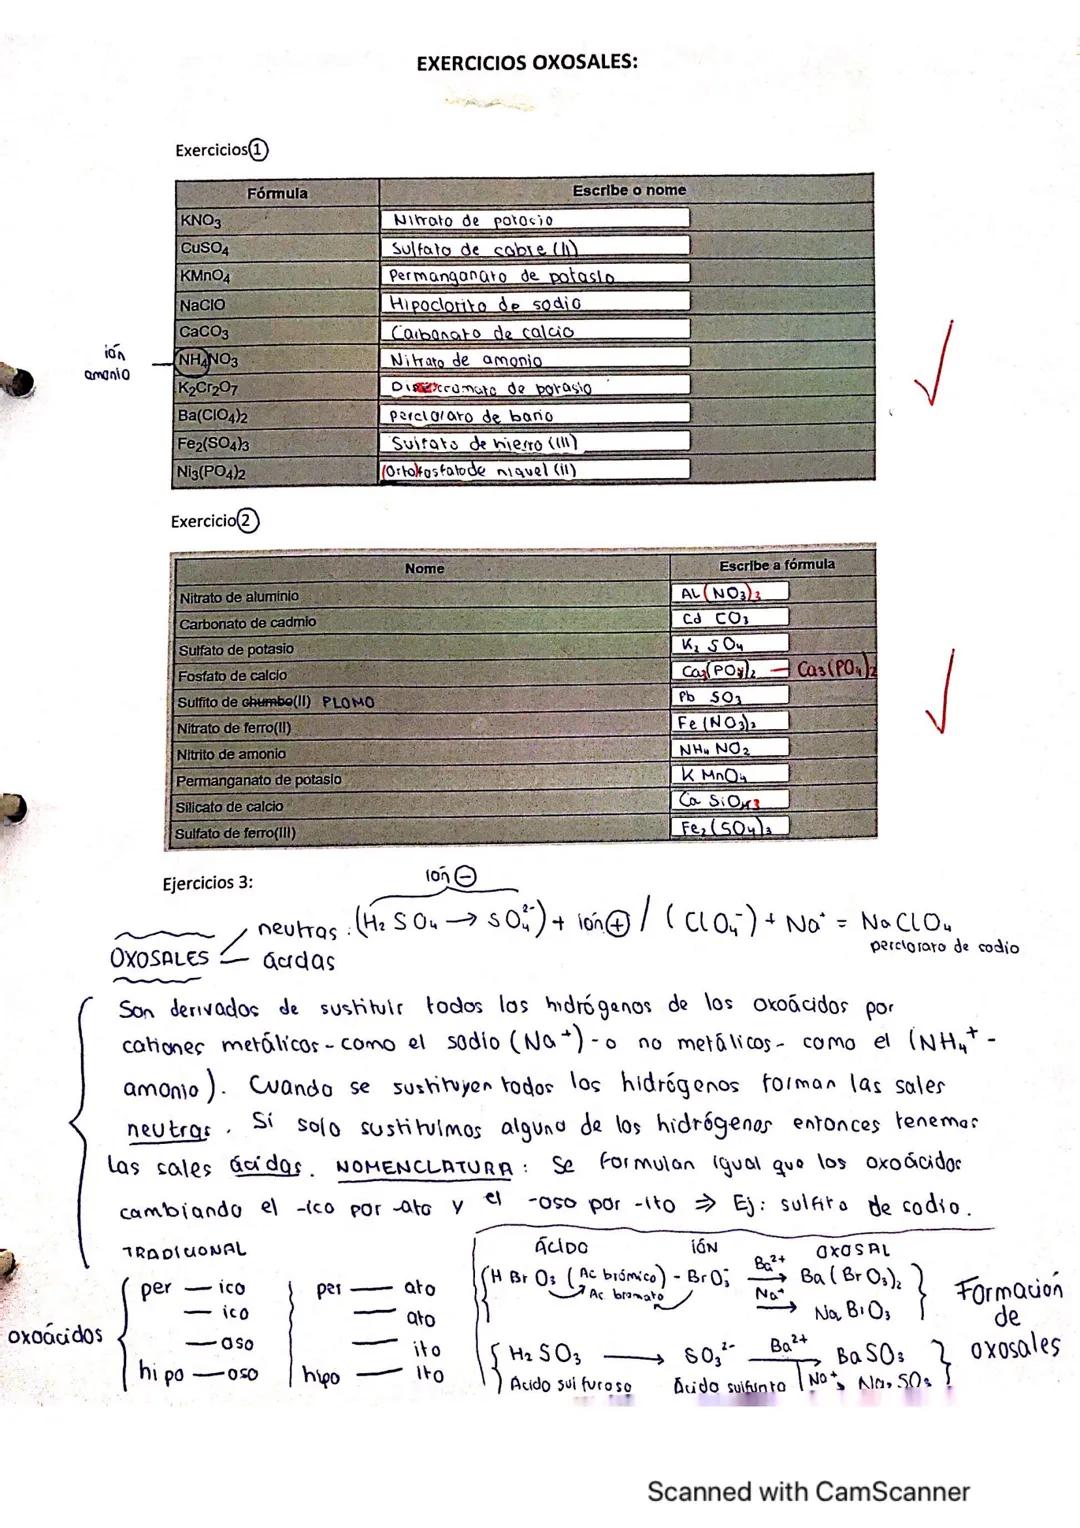 EXERCICIOS OXOSALES:
Exercicios 1
Fórmula Escribe o nome
KNO3 Nitrato de potasio
CuSO4 Sulfato de cobre (II)
KMnO4 Permanganato de potasio
NaClO Hipoclorito de sodio
CaCO3 Carbonato de calcio
ión amonio NH4NO3 Nitrato de amonio
K2Cr2O7 de potasio
Ba(ClO4)2 Perclorato de bario
Fe2(SO4)3 Sulfato de hierro (III)
Ni3(PO4)2 (Orto)fosfato de niquel (II)
Exercicio 2
Nome Escribe a fórmula
Nitrato de aluminio AL(NO3)3
Carbonato de cadmio Cd CO3
Sulfato de potasio K2 SO4
Fosfato de calcio Ca3(PO4)2 — Ca3(PO4)2
Sulfito de chumbo(II) PLOMO Pb SO3
Nitrato de ferro(II) Fe(NO3)2
Nitrito de amonio NH4 NO2
Permanganato de potasio K MnO4
Silicato de calcio Ca SiO3
Sulfato de ferro(III) Fe2(SO4)3
Ejercicios 3:
ión ⊖
OXOSALES neutras: (H2 SO4 → SO4²⁻) + ión ⊕ / (ClO4⁻) + Na⁺ = NaClO4
ácidas perclorato de sodio
Son derivados de sustituir todos los hidrógenos de los oxoácidos por
cationes metálicos - como el sodio (Na⁺) - o no metálicos - como el (NH4⁺ -
amonio). Cuando se sustituyen todos los hidrógenos forman las sales
neutras. Si solo sustituimos alguno de los hidrógenos entonces tenemos
las sales ácidas. NOMENCLATURA: Se formulan igual que los oxoácidos
cambiando el -ico por -ato y el -oso por -ito ⇒ Ej: sulfito de sodio.
TRADICIONAL
oxoácidos
per — ico
— ico
— oso
hipo — oso
per — ato
— ato
— ito
hipo — ito
ÁCIDO IÓN OXOSAL
H Br O3 (Ac brómico) - BrO3⁻ Ba²⁺ → Ba(BrO3)2
Ac bromato Na⁺ → Na BrO3
H2 SO3 → SO3²⁻ Ba²⁺ → Ba SO3
Ácido sulfuroso Ácido Na⁺ → Na2 SO3
Formación de oxosales
Scanned with CamScanner